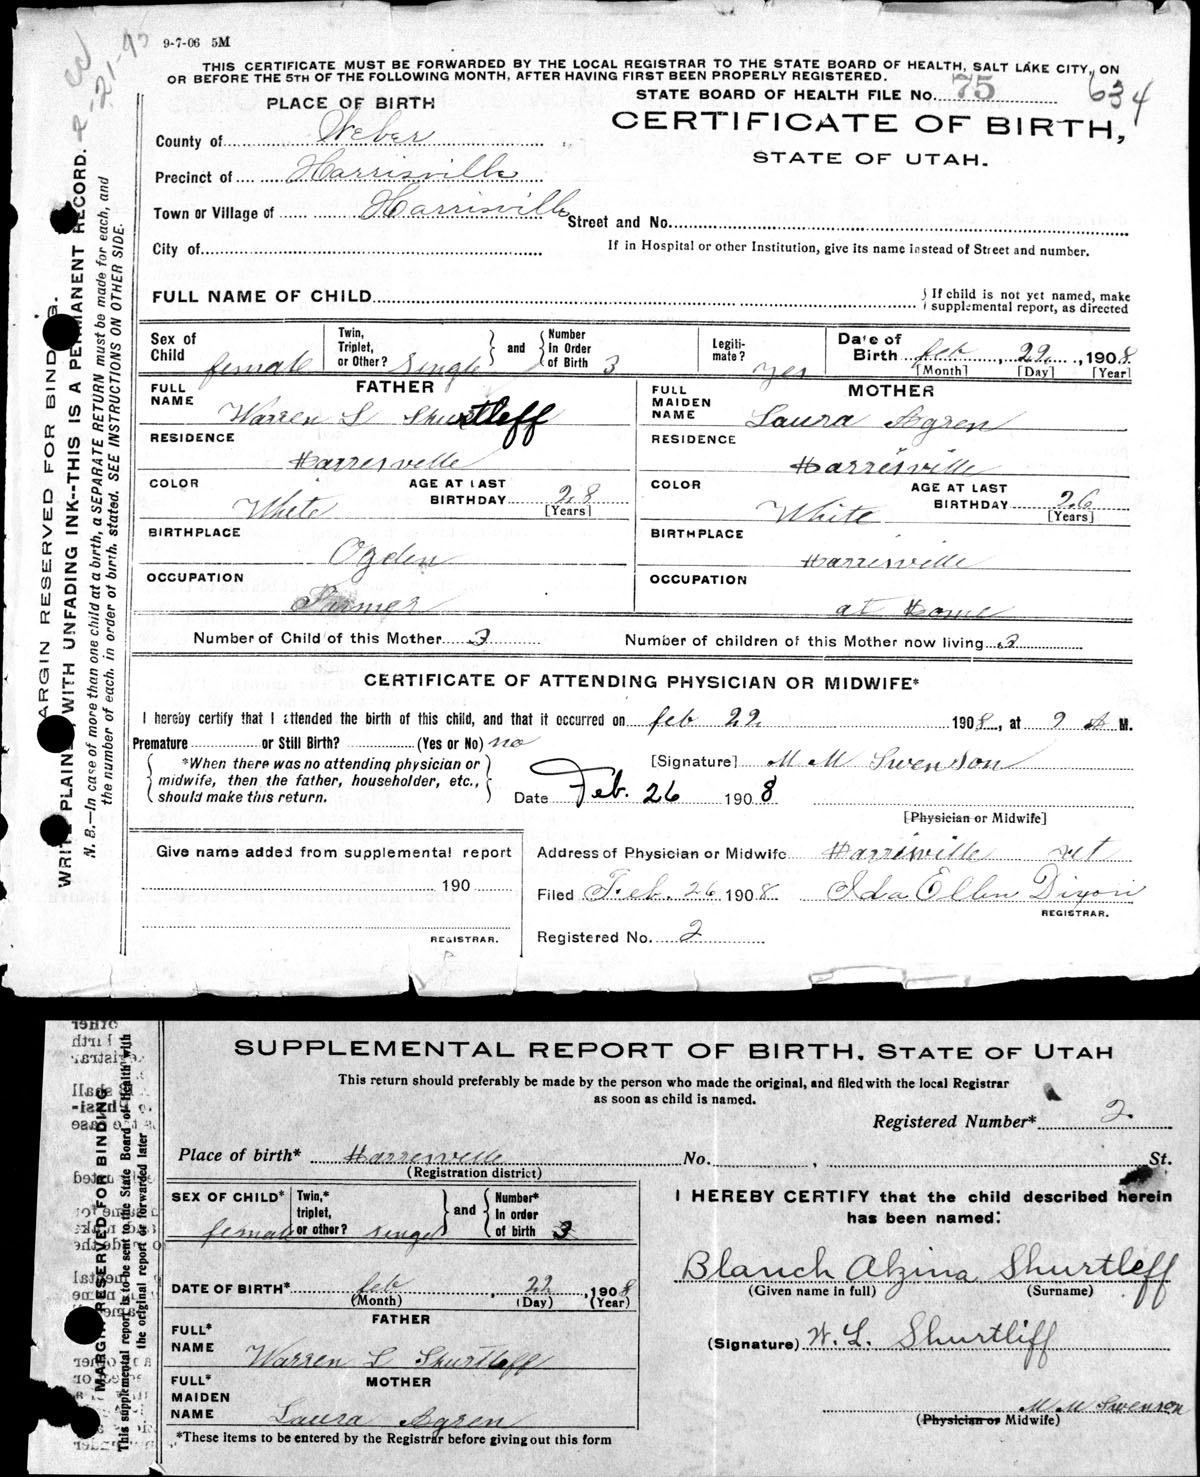 9-7-06 5M
THIS CERTIFICATE MUST BE FORWARDED BY THE LOCAL REGISTRAR TO THE STATE BOARD OF HEALTH, SALT LAKE CITY, ON
OR BEFORE THE 5TH OF THE FOLLOWING MONTH, AFTER HAVING FIRST BEEN PROPERLY REGISTERED.
STATE BOARD OF HEALTH FILE No. 75 634
PLACE OF BIRTH
CERTIFICATE OF BIRTH,
STATE OF UTAH.
County of Weber
Precinct of Harrisville
Town or Village of Harrisville Street and No.
City of If in Hospital or other Institution, give its name instead of Street and number.
FULL NAME OF CHILD { If child is not yet named, make
supplemental report, as directed
Sex of Child female Twin, Triplet, or Other? Single } and { Number In Order of Birth 3 Legiti-mate? yes Date of Birth feb, 22, 1908
[Month] [Day] [Year]
FULL NAME FATHER FULL MAIDEN NAME MOTHER
Warren L Shurtleff Laura Agren
RESIDENCE RESIDENCE
Harrisville Harrisville
COLOR White AGE AT LAST BIRTHDAY 28 [Years] COLOR White AGE AT LAST BIRTHDAY 26 [Years]
BIRTHPLACE BIRTHPLACE
Ogden Harrisville
OCCUPATION OCCUPATION
Farmer at Home
Number of Child of this Mother 3 Number of children of this Mother now living 3
CERTIFICATE OF ATTENDING PHYSICIAN OR MIDWIFE*
I hereby certify that I attended the birth of this child, and that it occurred on feb 22, 1908, at 9 A M.
Premature or Still Birth? (Yes or No) no
*When there was no attending physician or
midwife, then the father, householder, etc.,
should make this return.
[Signature] M M Swenson
Date Feb. 26 1908
[Physician or Midwife]
Give name added from supplemental report
190
REGISTRAR.
Address of Physician or Midwife Harrisville ut
Filed Feb. 26 1908 Ida Ellen Dixon
REGISTRAR.
Registered No. 2
MARGIN RESERVED FOR BINDING.
WRITE PLAINLY, WITH UNFADING INK--THIS IS A PERMANENT RECORD.
N. B.—In case of more than one child at a birth, a SEPARATE RETURN must be made for each, and
the number of each, in order of birth, stated. SEE INSTRUCTIONS ON OTHER SIDE.
SUPPLEMENTAL REPORT OF BIRTH, STATE OF UTAH
This return should preferably be made by the person who made the original, and filed with the local Registrar
as soon as child is named.
Registered Number* 2
Place of birth* Harrisville No. , St.
(Registration district)
SEX OF CHILD* female Twin,* triplet, or other? singel } and { Number* In order of birth 3
DATE OF BIRTH* feb, 22, 1908
(Month) (Day) (Year)
FATHER
FULL* NAME
Warren L Shurtleff
MOTHER
FULL* MAIDEN NAME
Laura Agren
*These items to be entered by the Registrar before giving out this form
I HEREBY CERTIFY that the child described herein
has been named:
Blanch Alzina Shurtleff
(Given name in full) (Surname)
(Signature) W. L. Shurtliff
M M Swenson
(Physician or Midwife)
MARGIN RESERVED FOR BINDING
This supplemental report is to be sent to the State Board of Health with
the original report or forwarded later